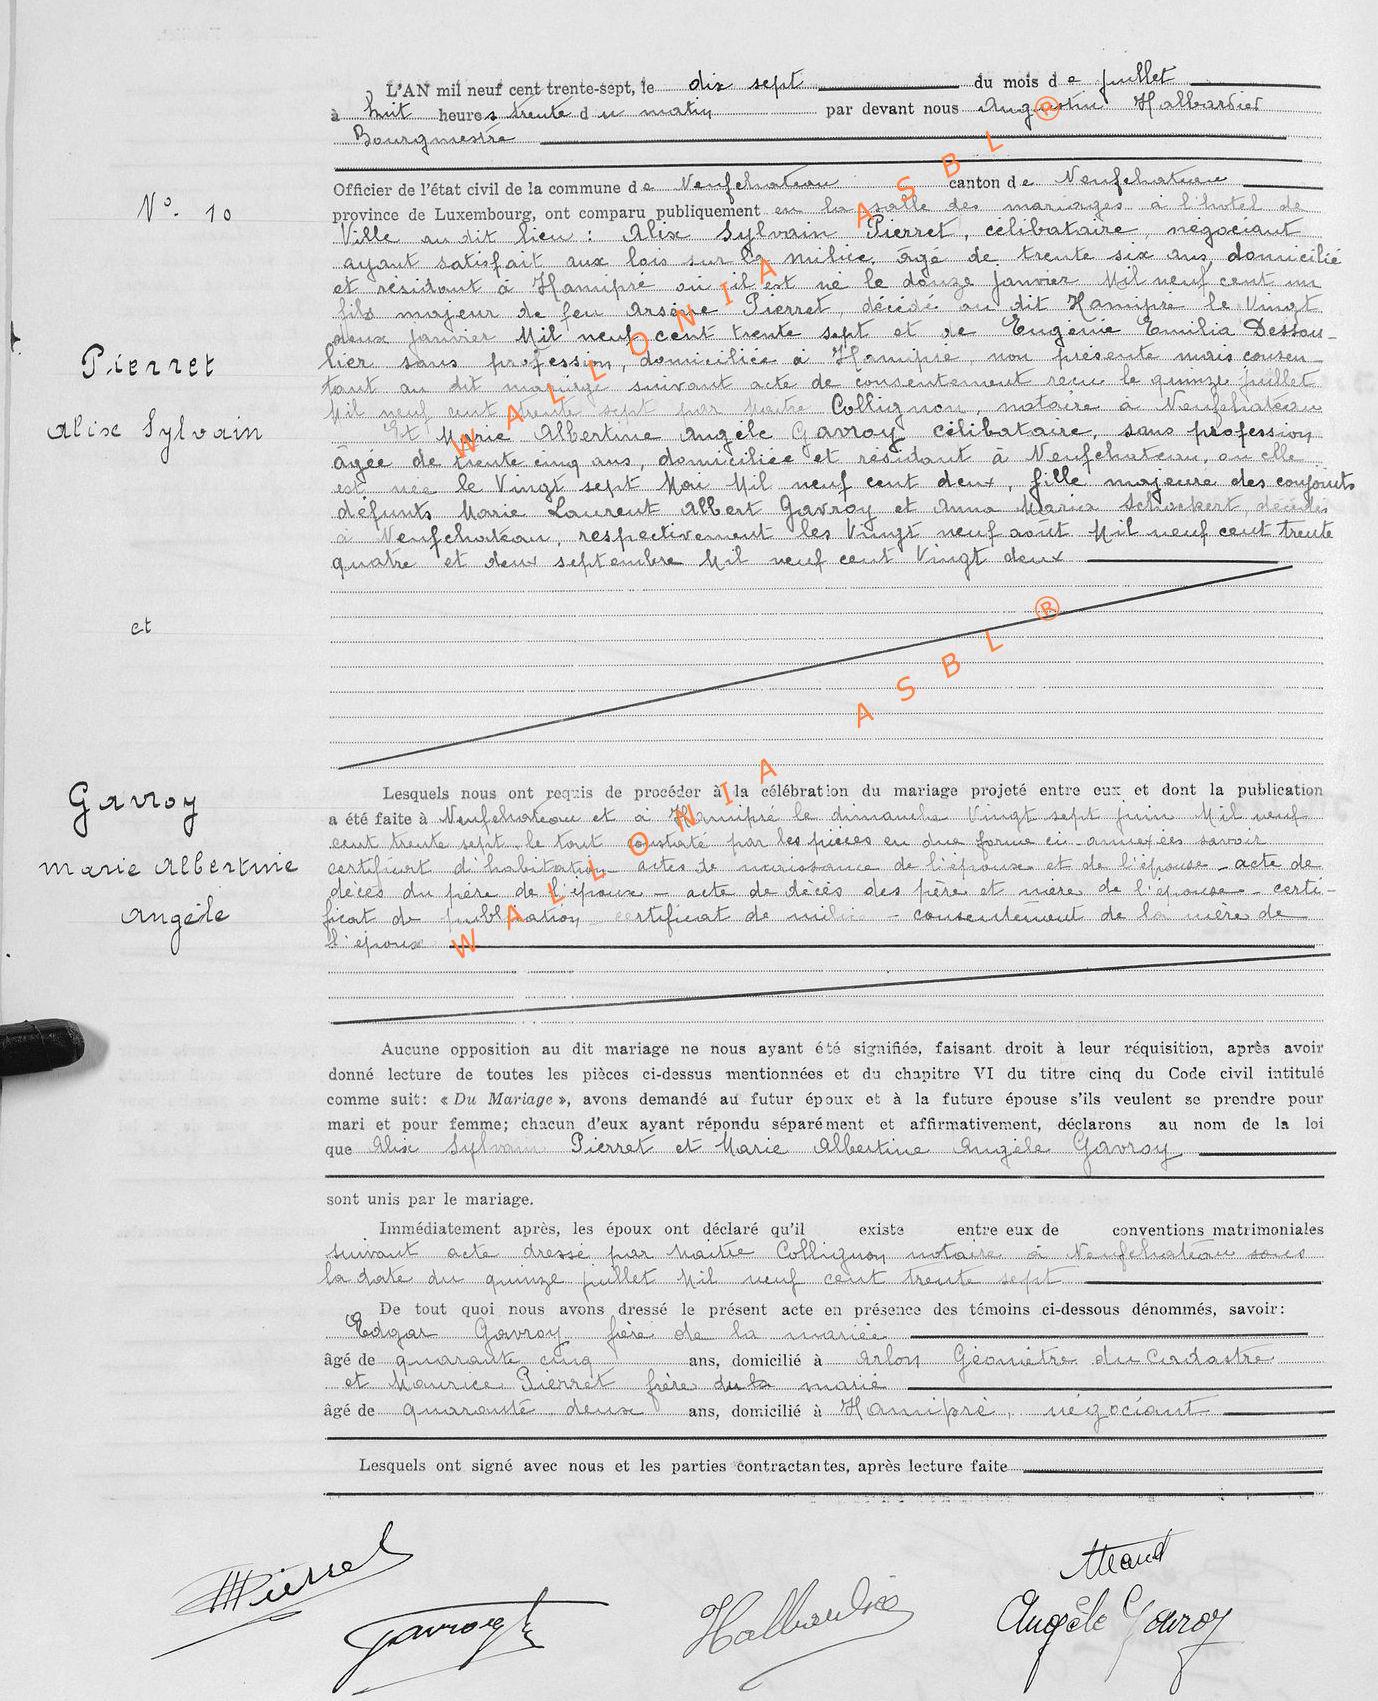 L'AN mil neuf cent trente-sept, le dix sept du mois de juillet
à huit heures trente du matin par devant nous Augustin Halbardier
Bourgmestre
Officier de l'état civil de la commune de Neufchateau canton de Neufchateau
N°. 10
province de Luxembourg, ont comparu publiquement en la salle des mariages à l'hotel de
Ville au dit lieu : Alix Sylvain Pierret, célibataire, négociant
ayant satisfait aux lois sur la milice, âgé de trente six ans, domicilié
et résidant à Hamipré où il est né le douze janvier Mil neuf cent un
fils majeur de feu Arsène Pierret, décédé au dit Hamipré le Vingt
deux janvier Mil neuf cent trente sept et de Eugénie Emilia Dessou-
lier sans profession, domiciliée à Hamipré non présente mais consen-
tant au dit mariage suivant acte de consentement recu le quinze juillet
Mil neuf cent trente sept par Maitre Collignon, notaire à Neufchateau
Et Marie Albertine Angèle Gavroy célibataire, sans profession
âgée de trente cinq ans, domiciliée et résidant à Neufchateau, où elle
est née le Vingt sept Mai Mil neuf cent deux, fille majeure des conjoints
défunts Marie Laurent Albert Gavroy et Anna Maria Schockert, décédés
à Neufchateau, respectivement les Vingt neuf août Mil neuf cent trente
quatre et deux septembre Mil neuf cent Vingt deux
Pierret
Alix Sylvain
et
Gavroy
Marie Albertine
Angèle
Lesquels nous ont requis de procéder à la célébration du mariage projeté entre eux et dont la publication
a été faite à Neufchateau et à Hamipré le dimanche Vingt sept juin Mil neuf
cent trente sept le tout constaté par les pièces en due forme ci-annexées savoir
certificat d'habitation actes de naissance de l'époux et de l'épouse - acte de
décès du père de l'époux - acte de décès des père et mère de l'épouse - certi-
ficat de publication, certificat de milice - consentement de la mère de
l'époux
Aucune opposition au dit mariage ne nous ayant été signifiée, faisant droit à leur réquisition, après avoir
donné lecture de toutes les pièces ci-dessus mentionnées et du chapitre VI du titre cinq du Code civil intitulé
comme suit: « Du Mariage », avons demandé au futur époux et à la future épouse s'ils veulent se prendre pour
mari et pour femme; chacun d'eux ayant répondu séparément et affirmativement, déclarons au nom de la loi
que Alix Sylvain Pierret et Marie Albertine Angèle Gavroy
sont unis par le mariage.
Immédiatement après, les époux ont déclaré qu'il existe entre eux de conventions matrimoniales
suivant acte dressé par Maitre Collignon, notaire à Neufchateau sous
la date du quinze juillet Mil neuf cent trente sept
De tout quoi nous avons dressé le présent acte en présence des témoins ci-dessous dénommés, savoir:
Edgar Gavroy frère de la mariée
âgé de quarante cinq ans, domicilié à Arlon Géomètre du Cadastre
et Maurice Pierret frère du marié
âgé de quarante deux ans, domicilié à Hamipré, négociant
Lesquels ont signé avec nous et les parties contractantes, après lecture faite
Pierret
Gavroy
Halbardier
Angèle Gavroy
WALLONIA ASBL ®
WALLONIA ASBL ®